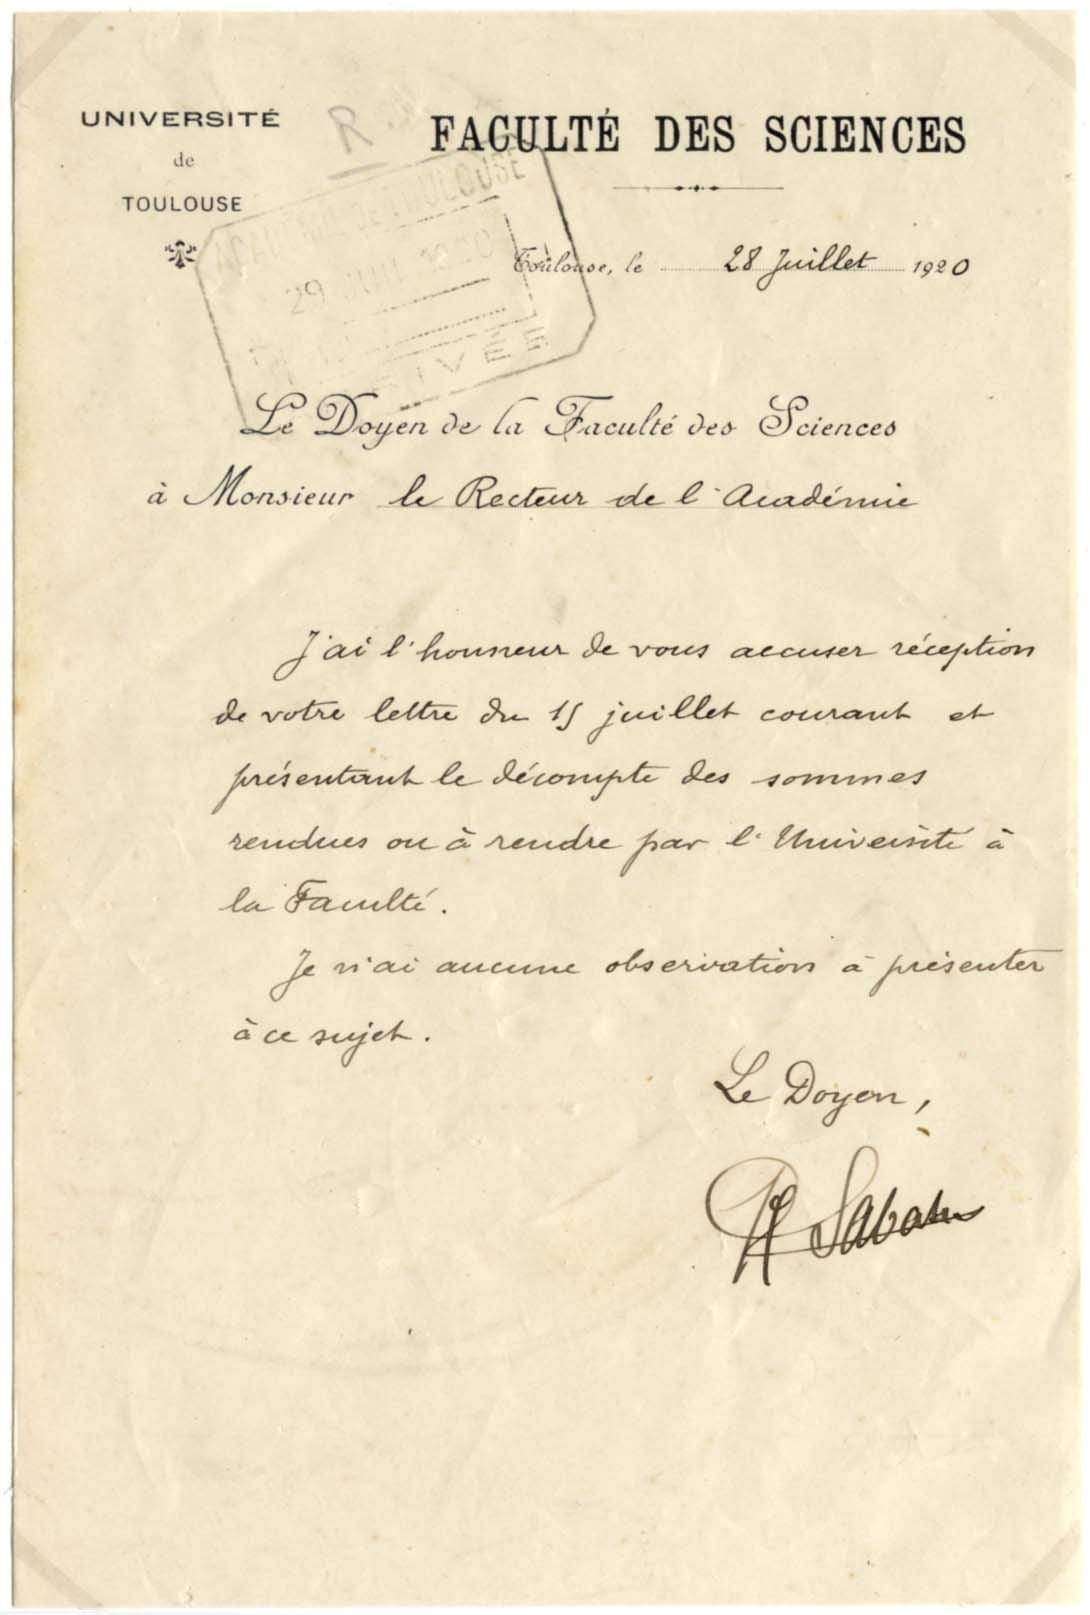 UNIVERSITÉ
de
TOULOUSE
R
FACULTÉ DES SCIENCES
ACADÉMIE DE TOULOUSE
29 1920
ARRIVÉE
Toulouse, le 28 Juillet 1920
Le Doyen de la Faculté des Sciences
à Monsieur le Recteur de l'Académie
J'ai l'honneur de vous accuser réception
de votre lettre du 15 juillet courant et
présentant le décompte des sommes
rendues ou à rendre par l'Université à
la Faculté.
Je n'ai aucune observation à présenter
à ce sujet.
Le Doyen,
P Sabatier